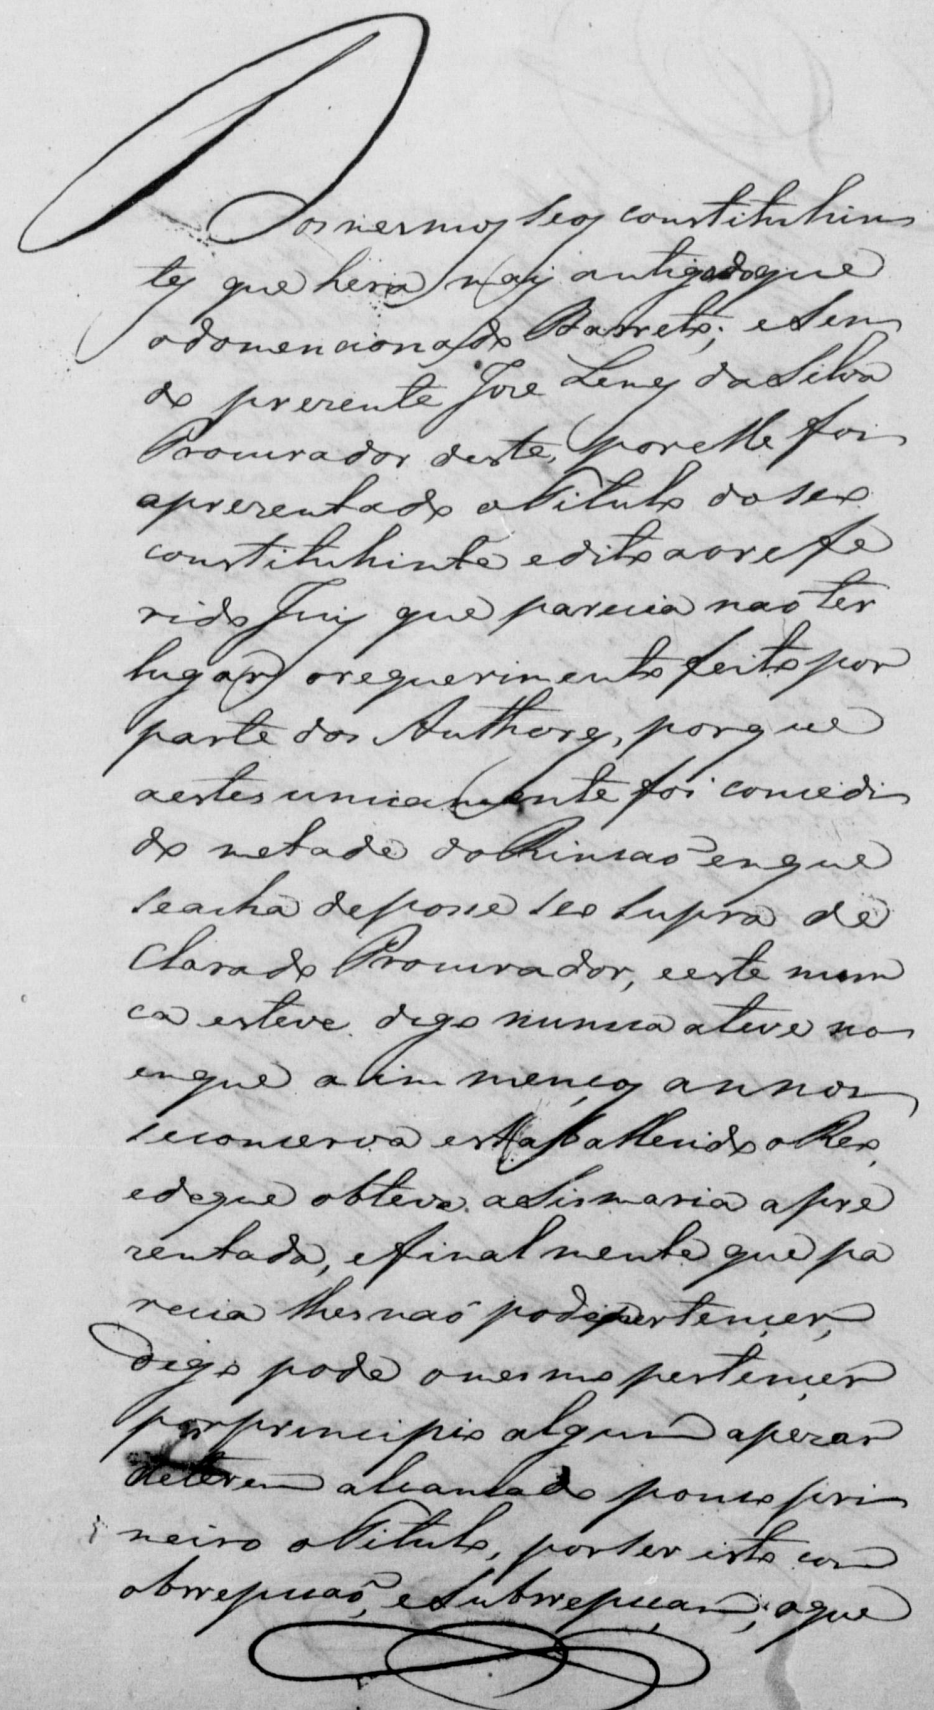 dos mesmos seos constituhin
tes que hera mais antigo do que
o do mencionado Barreto; e sen
do prezente Joze Lemes da Silva
Procurador deste, por elle foi
aprezentado o Titulo do seo
constituhinte e dito ao refe
rido Juiz que parecia naõ ter
lugar o requerimento feito por
parte dos Authores, porque
a estes unicamente foi concedi
do metade do Rincaõ em que
se acha de posse seo supra de
clarado Procurador, e este nun
ca esteve digo nunca a teve no
em que a immensos annos
se conserva estaballecido o Reo,
e de que obteve a Sismaria apre
zentada, e finalmente que pa
recia lhes naõ pode pertencer,
digo pode o mesmo pertencer
por principio algum apezar
de terem alcançado pouco pri
meiro o Titulo, por ser isto com
obrrepçaõ, e subrrepçam; o que